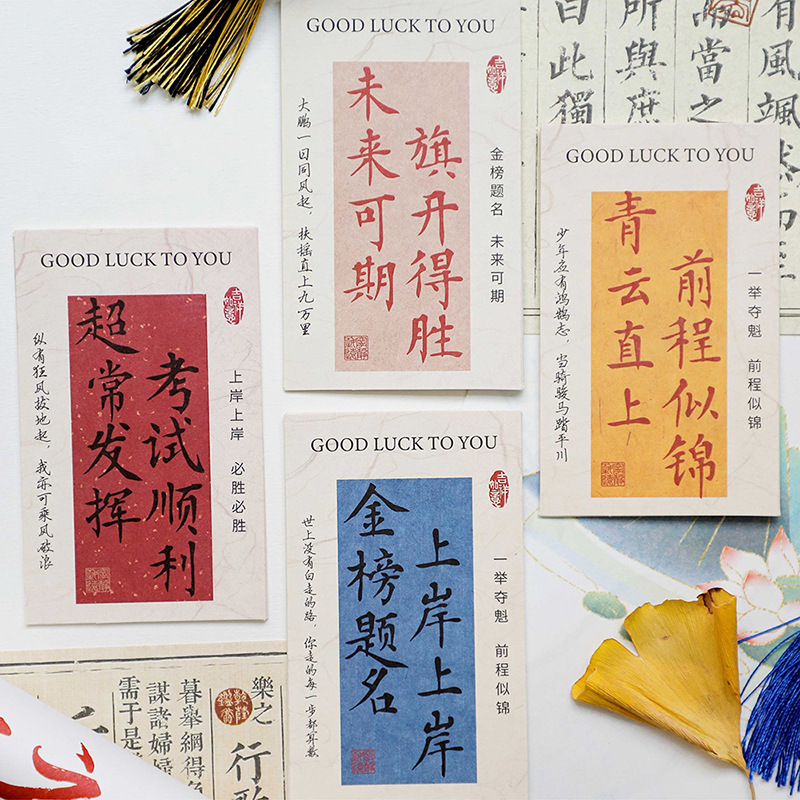 GOOD LUCK TO YOU
金榜题名 未来可期
旗开得胜
未来可期
大鹏一日同风起，扶摇直上九万里
有風颯然
當之
所與庶
此獨
GOOD LUCK TO YOU
一举夺魁 前程似锦
前程似锦
青云直上
少年应有鸿鹄志，当骑骏马踏平川
GOOD LUCK TO YOU
上岸上岸 必胜必胜
考试顺利
超常发挥
纵有狂风拔地起，我亦可乘风破浪
GOOD LUCK TO YOU
一举夺魁 前程似锦
上岸上岸
金榜题名
世上没有白走的路，你走的每一步都算数
樂之
行歌
暮舉網得
謀諸婦婦
需于是